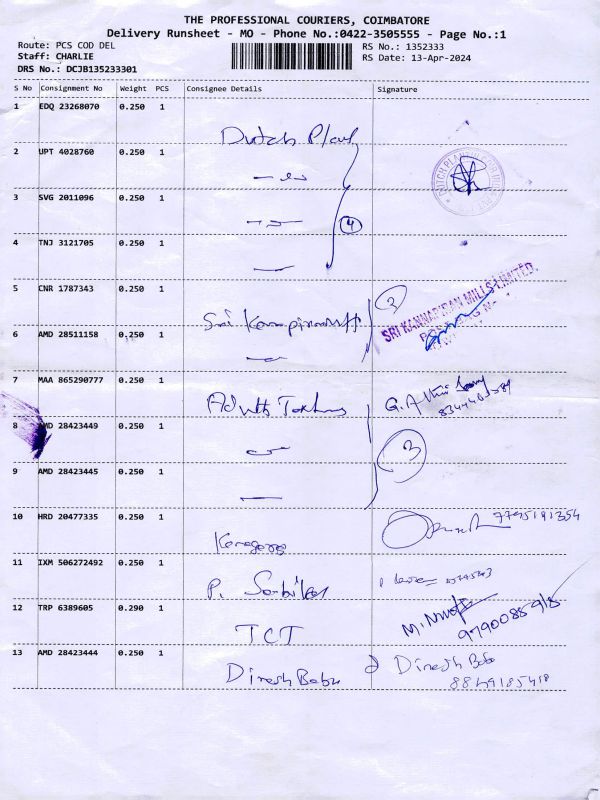 THE PROFESSIONAL COURIERS, COIMBATORE
Delivery Runsheet - MO - Phone No.:0422-3505555 - Page No.:1
Route: PCS COD DEL RS No.: 1352333
Staff: CHARLIE RS Date: 13-Apr-2024
DRS No.: DCJB135233301
S No Consignment No Weight PCS Consignee Details Signature
1 EDQ 23268070 0.250 1
Dutch
2 UPT 4028760 0.250 1
3 SVG 2011096 0.250 1
4
4 TNJ 3121705 0.250 1
5 CNR 1787343 0.250 1
Sri SRI KANNAPIRAN MILLS LIMITED
6 AMD 28511158 0.250 1
7 MAA 865290777 0.250 1
8 AMD 28423449 0.250 1
3
9 AMD 28423445 0.250 1
10 HRD 20477335 0.250 1
7795191354
11 IXM 506272492 0.250 1
P.
12 TRP 6389605 0.290 1
TCT M.
13 AMD 28423444 0.250 1
Dinesh Babu Dinesh Babu